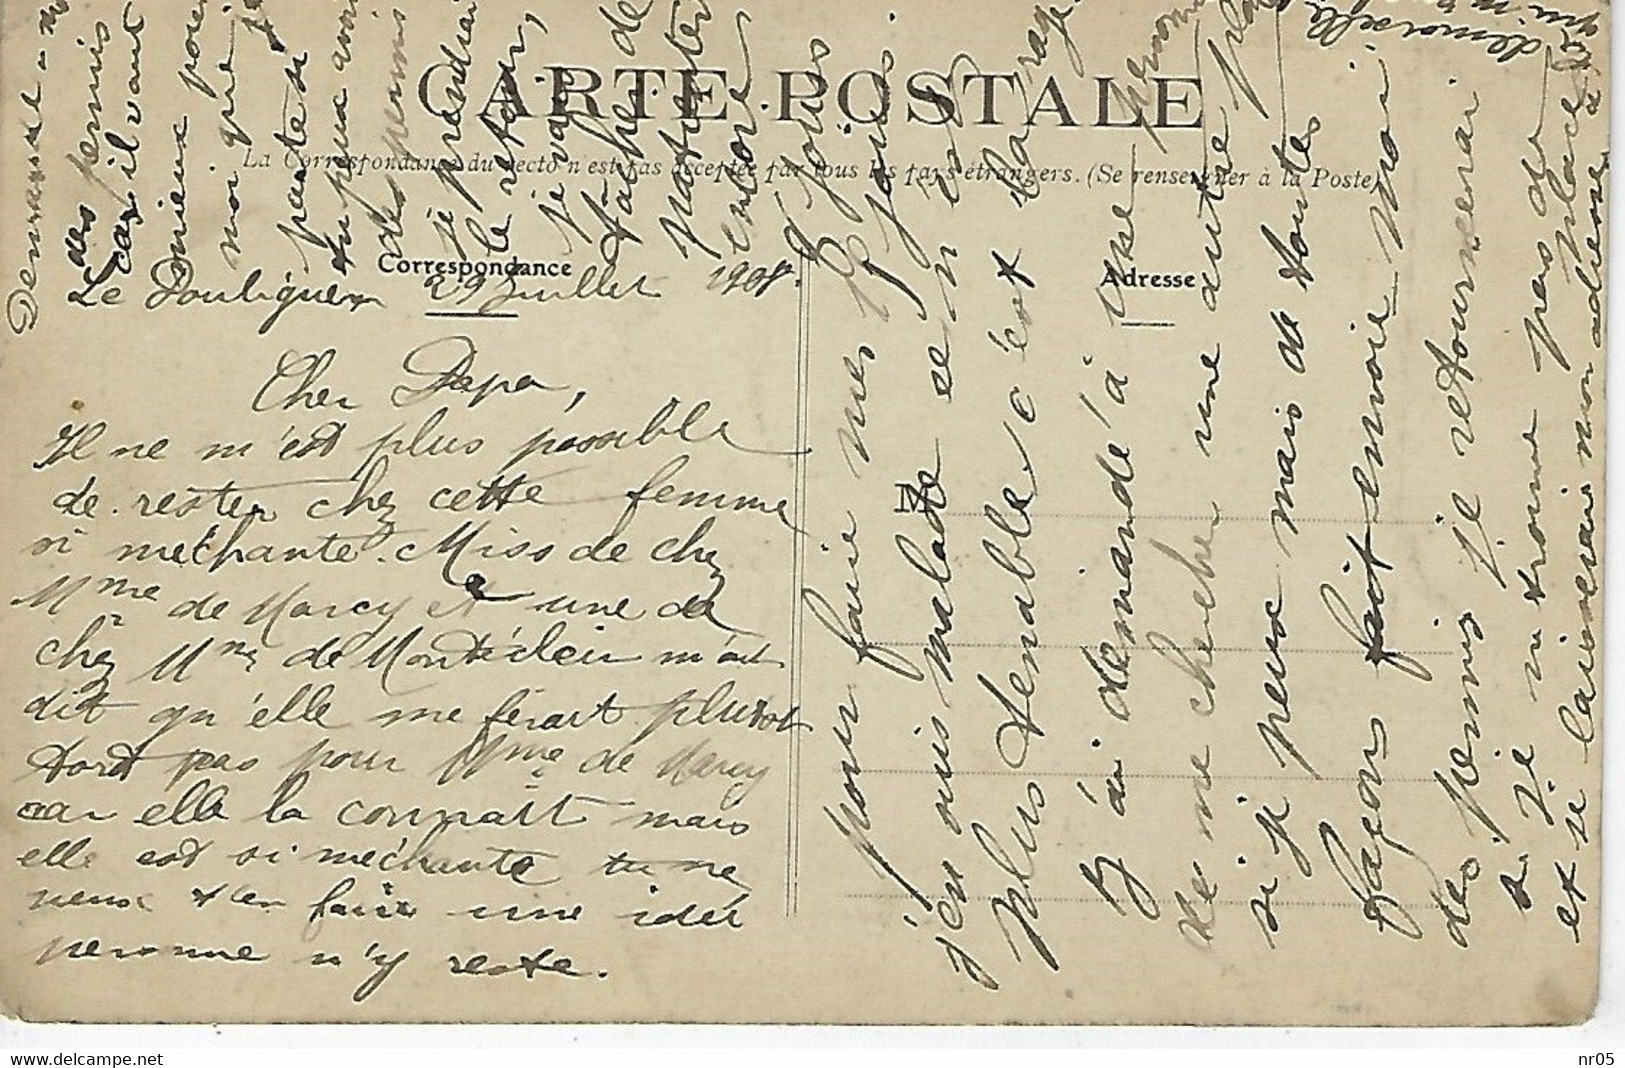 CARTE POSTALE
La Correspondance du recto n'est pas acceptée par tous les pays étrangers. (Se renseigner à la Poste)
Correspondance
Adresse
M
Le Pouliguen 29 Juillet 1908.
Cher Papa,
Il ne m'est plus possible
de rester chez cette femme
si méchante. Miss de chez
Mme de Marcy et une de
chez Mme de Montéclein m'ont
dit qu'elle me ferait plutot
tord pas pour Mme de Marcy
car elle la connaît mais
elle est si méchante tu ne
peux t'en faire une ideé
personne n'y reste.
pour faire mes 8 jours
j'en suis malade
plus tenable c'est la rage
J'ai demandé à
de me chercher une autre
si je peux mais de toutes
façons fait envoie moi
des permis je retournerai
si je n'trouve pas de place
et si laisserais mon adresse à
demoiselle
qui m'
Demande-m
des permis
car il vaut
mieux pour
moi que je
parte si
tu peux avoir
des permis
je prendrai
le retour,
je vais
tâcher de
patienter
encore
8 jours
nr05